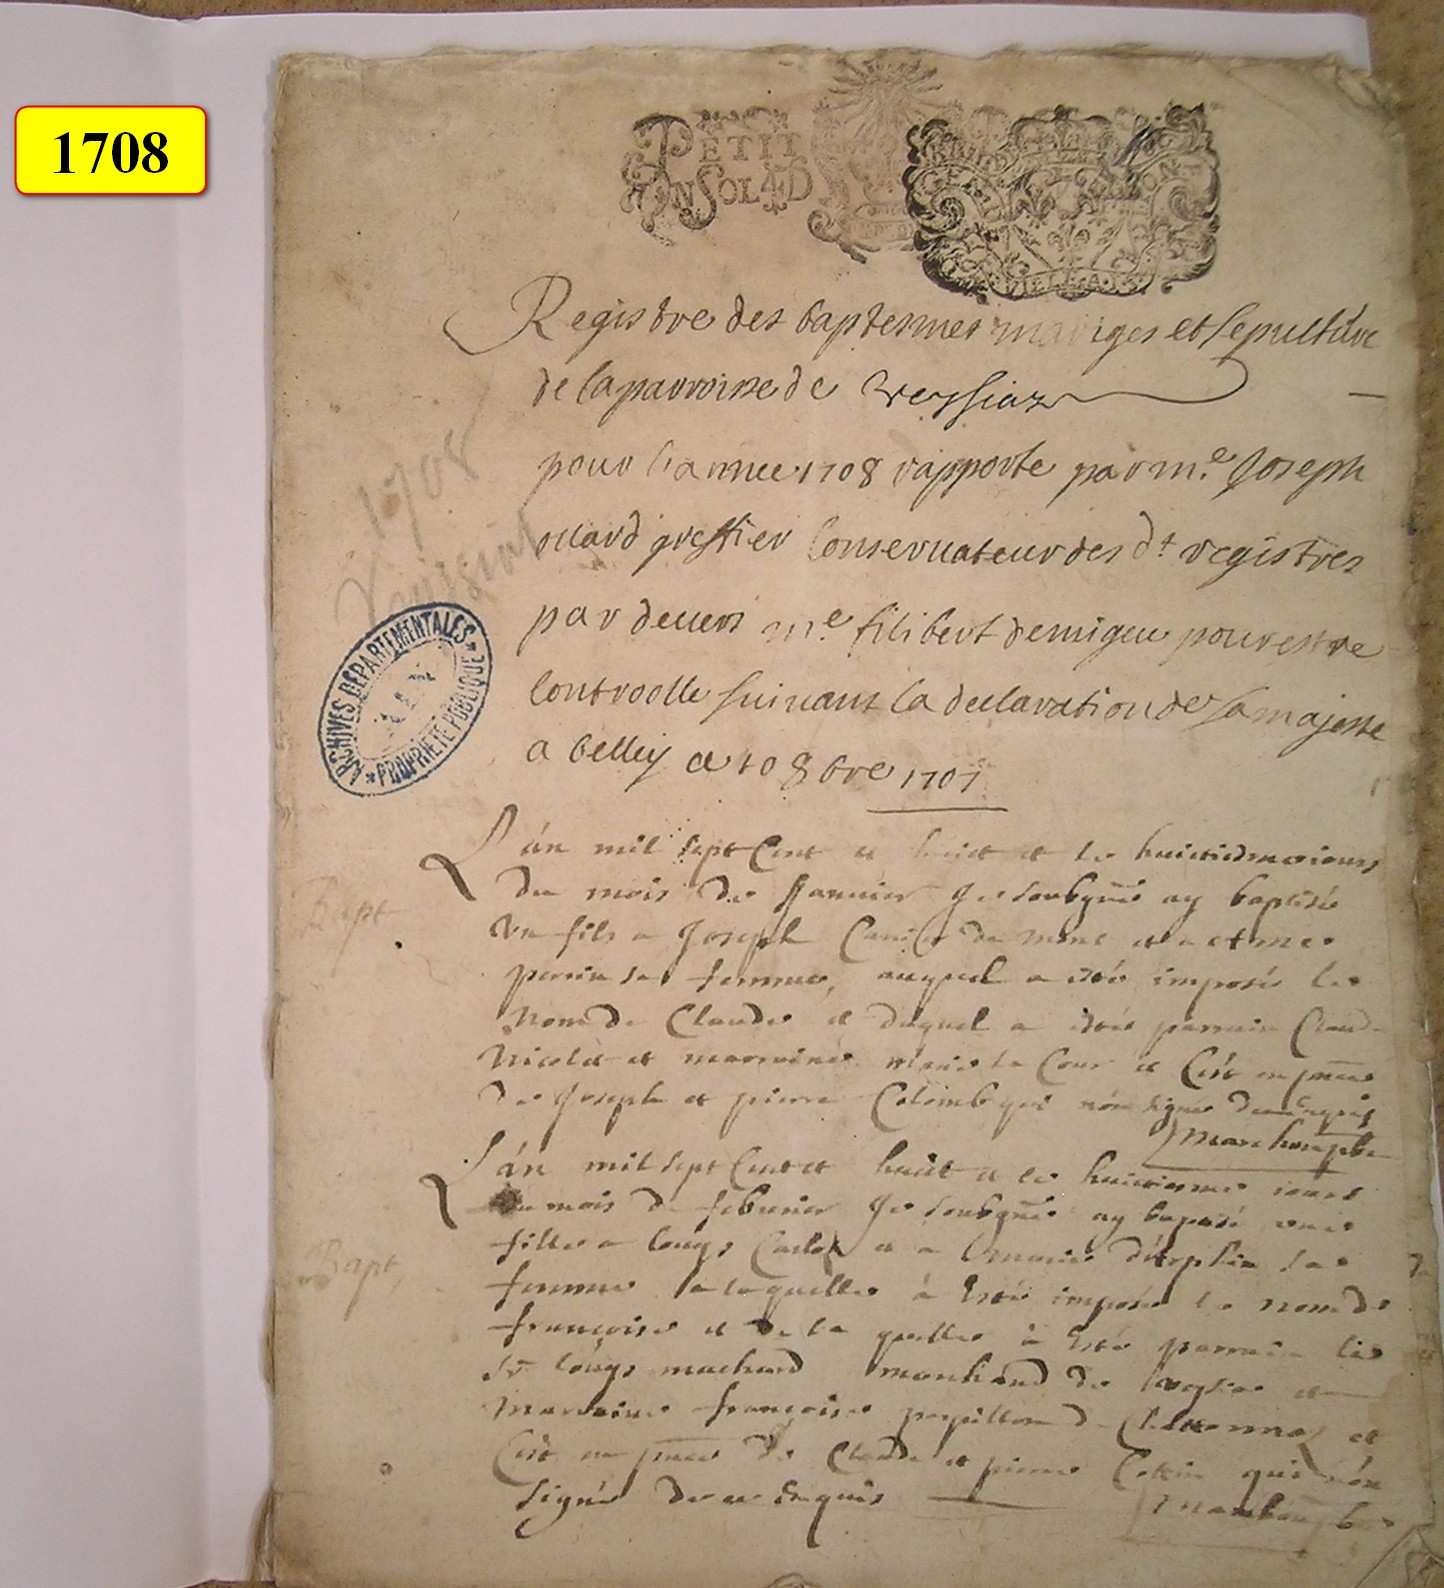 1708
PETIT
UN SOL 4 D
Registre des baptesmes mariges et sepulture
de la parroisse de veyssiaz
pour l'annee 1708 rapporte par m.e Joseph
ollard greffier Conservateur des d.t registres
par devers m.e filibert demigeu pour estre
Controolle suivant la declaration de sa majeste
a belley ce 10 8bre 1707
1708
ARCHIVES DÉPARTEMENTALES
AIN
PROPRIÉTÉ PUBLIQUE
L'án mil sept Cent et huict et le huictiesme iours
du mois de Januier Je soubgné ay baptisé
Bapt
vn fils a Joseph et a etme
perrin sa femme, auquel a esté imposé le
Nom de Claude et duquel a estée parrain Claude
Nicolet et marraine la Cour et C'est en pnce
de Joseph et pierre Colomb qui nón signé de ce enquis
L'án mil sept Cent et huict et le huictiesme iours
du mois de febvrier Je soubgné ay baptisé vne
fille a Louys et a sa
Bapt,
femme a laquelle à Esté imposé le nom de
françoise et de la quelle à Esté parrain le
Sr Louys machard marchand de et
Marraine françoise papillon de et
C'est en pnce de Claude et pierre Cottin qui nón
signé de ce enquis